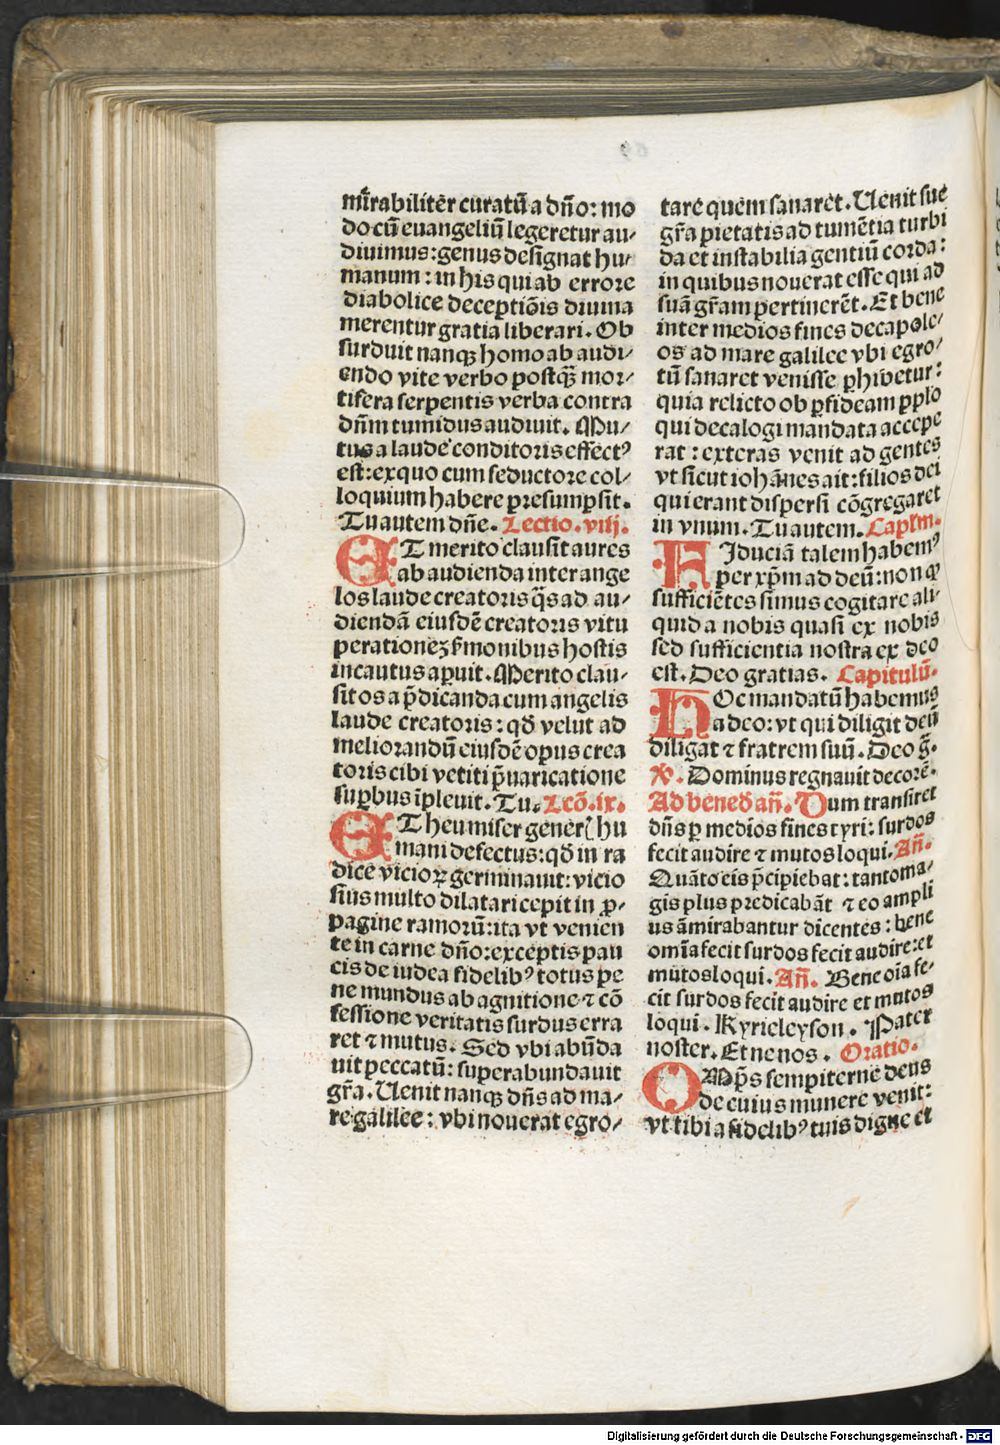 mirabiliter curatū a dño: mo
do cū euangeliū legeretur au-
diuimus: genus designat hu-
manum: in his qui ab errore
diabolice deceptiõis diuina
merentur gratia liberari. Ob
surduit nanqꝫ homo ab audi-
endo vite verbo postqꝫ̃ mor-
tifera serpentis verba contra
dñm tumidus audiuit. Mu-
tus a laude conditoris effectꝰ
est: ex quo cum seductore col-
loquium habere presumpsit.
Tu autem dñe. Lectio. viij.
ET merito clausit aures
ab audienda inter ange
los laude creatoris q̃s ad au-
diendā eiusdē creatoris vitu
perationeꝫ ẜmonibus hostis
incautus aꝑuit. Merito clau-
sit os a p̃dicanda cum angelis
laude creatoris: qð velut ad
meliorandū eiusdē opus crea
toris cibi vetiti p̃uaricatione
suꝑbus īpleuit. Tu. Lcō. ix.
ET heu miser generꝭ hu
mani defectus: qð in ra
dice vicioꝝ germinauit: vicio
sius multo dilatari cepit in ꝓ-
pagine ramorū: ita vt venien
te in carne dño: exceptis pau
cis de iudea fidelibꝰ totus pe
ne mundus ab agnitione ⁊ cō
fessione veritatis surdus erra
ret ⁊ mutus. Sed vbi abūda
uit peccatū: superabundauit
gr̃a. Uenit nanqꝫ dñs ad ma-
re galilee: vbi nouerat egro-
tare quem sanaret. Uenit sue
gr̃a pietatis ad tumētia turbi
da et instabilia gentiū corda:
in quibus nouerat esse qui ad
suā gr̃am pertinerēt. Et bene
inter medios fines decapole-
os ad mare galilee vbi egro-
tū sanaret venisse ꝑhibetur:
quia relicto ob ꝑfideam ꝓplo
qui decalogi mandata accepe
rat: exteras venit ad gentes
vt sicut iohānes ait: filios dei
qui erant dispersi cōgregaret
in vnum. Tu autem. Caplm.
FIduciā talem habemꝰ
per xp̄m ad deū: non qꝫ
sufficiētes simus cogitare ali-
quid a nobis quasi ex nobis
sed sufficientia nostra ex deo
est. Deo gratias. Capitulū.
HOc mandatū habemus
a deo: vt qui diligit deū
diligat ⁊ fratrem suū. Deo g̃.
℣. Dominus regnauit decorē.
Ad bened̃ añ. Dum transiret
dñs ꝑ medios fines tyri: surdos
fecit audire ⁊ mutos loqui. Añ.
Quāto eis p̃cipiebat: tanto ma-
gis plus predicabāt ⁊ eo ampli
us āmirabantur dicentes: bene
omīa fecit surdos fecit audire: et
mutos loqui. Añ. Bene oīa fe-
cit surdos fecit audire et mutos
loqui. Kyrieleyson. Pater
noster. Et ne nos. Oratio.
OMp̃s sempiterne deus
de cuius munere venit:
vt tibi a fidelibꝰ tuis digne et
Digitalisierung gefördert durch die Deutsche Forschungsgemeinschaft - DFG